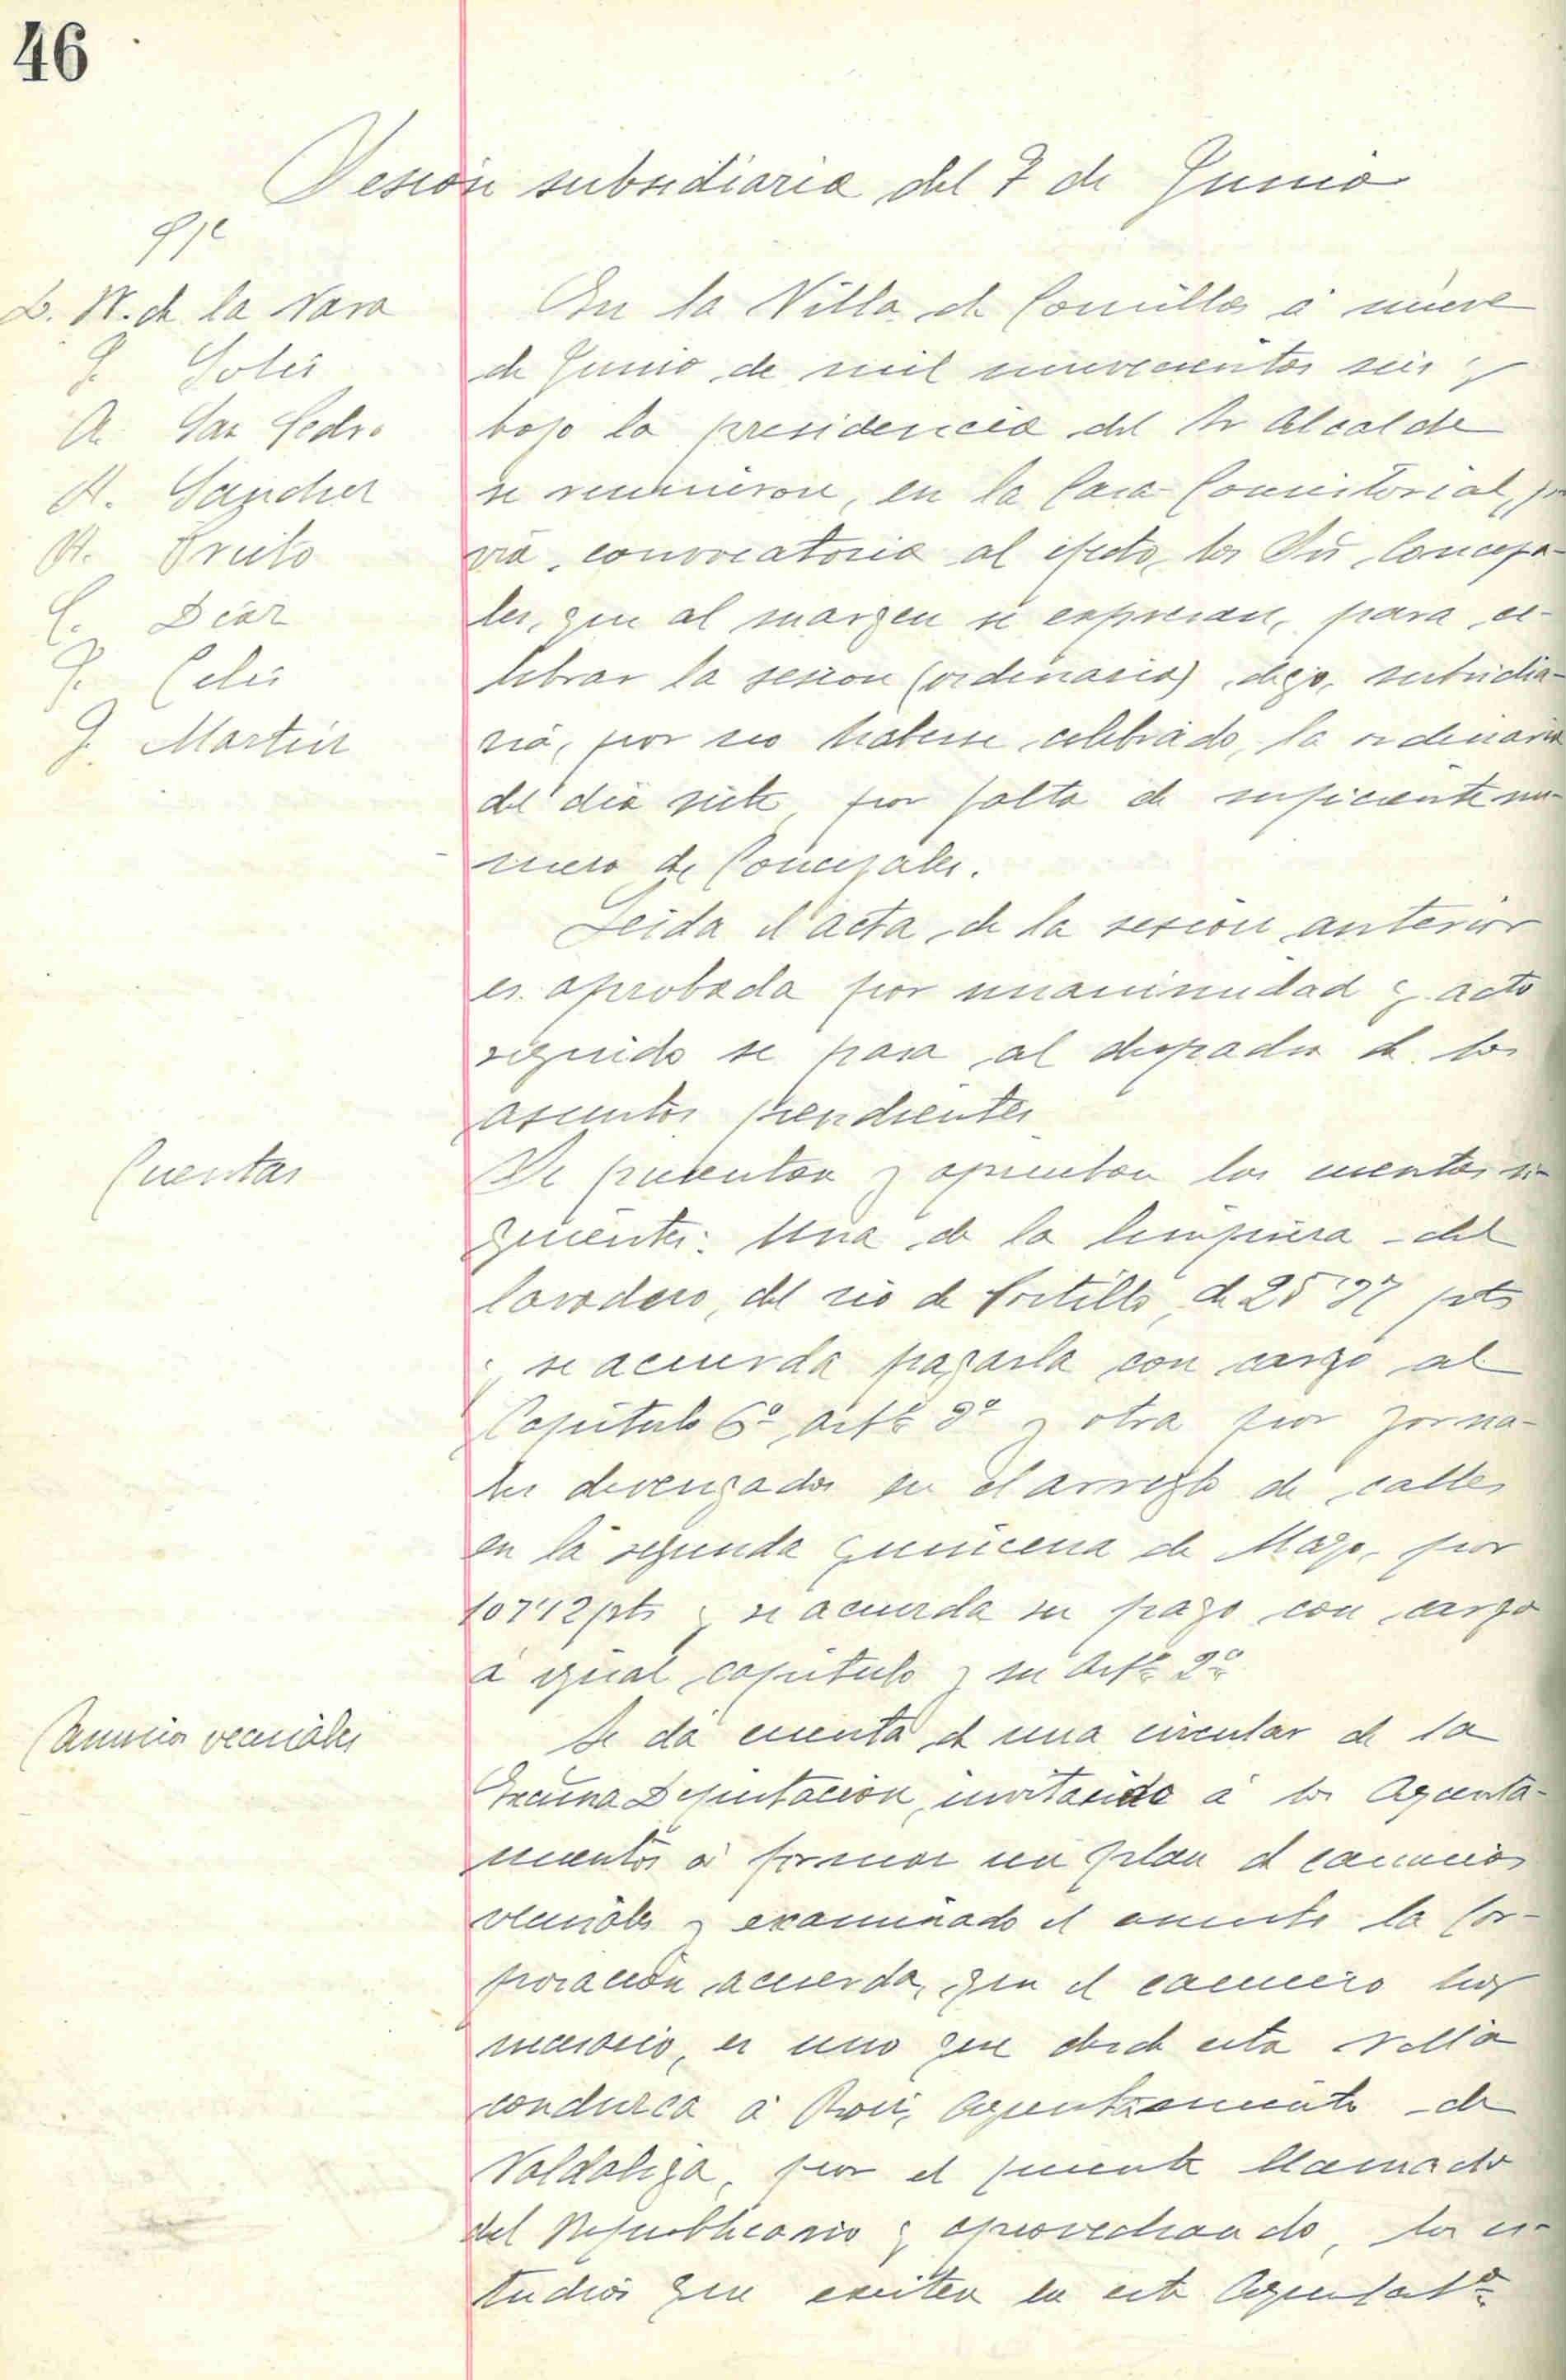 46
Sesión subsidiaria del 7 de Junio
Pte
L. W. de la Vara
J. Solís
A. San Pedro
A. Sanchez
A. Prieto
C. Diaz
P. Celis
J. Martin
En la Villa de Comillas á nueve
de Junio de mil novecientos seis y
bajo la presidencia del Sr Alcalde
se reunieron, en la Casa Consistorial, pre
via, convocatoria al efecto, los Srs, Conceja-
les, que al margen se expresan, para ce-
lebrar la sesion (ordinaria) digo, subsidia-
ria, por no haberse celebrado, la ordinaria
del dia siete, por falta de suficiente nu-
mero de Concejales.
Leida el acta, de la sesión anterior
es aprobada por unanimidad y acto
seguido se pasa al despacho de los
asuntos pendientes
Cuentas
Se presentan y aprueban las cuentas si-
guientes: Una de la limpieza del
lavadero, del rio de Portillo, de 25'97 pts
y se acuerda pagarla con cargo al
Capitulo 6º, Artº 3º y otra por jorna-
les devengados en el arreglo de calles
en la segunda quincena de Mayo, por
107'12 pts y se acuerda su pago con cargo
á igual capitulo y su Artº 2º
Caminos vecinales
Se dá cuenta de una circular de la
Excma Diputación, invitando á los Ayunta-
mientos á formar un plan de caminos
vecinales y examinado el asunto la Cor-
poración acuerda, que el camino hoy
necesario, es uno que desde esta Villa
conduzca á Roiz, Ayuntamiento de
Valdaliga, por el puente llamado
del Republicano y aprovechando, los es-
tudios que existen en este Ayuntatº